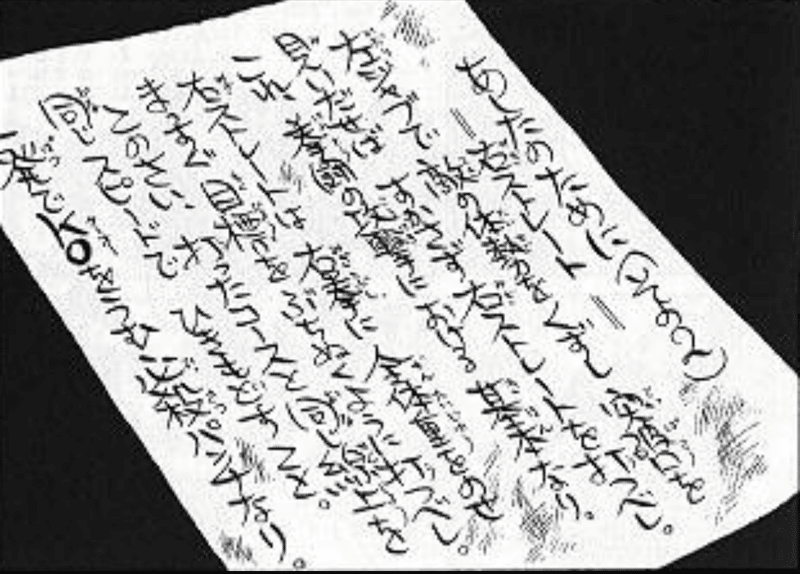 あしたのために(その2)
=右ストレート=
左ジャブで 敵の体勢をくずし 突破口を
見いだせば すかさず 右ストレートを打つべし。
これ 拳闘の攻撃における 基本なり。
右ストレートは 右拳に 全体重をのせ
まっすぐ 目標をぶちぬくように打つべし。
このさい 打ったコースと同じ線上を
同じスピードで ひきもどすこと。
一発でKOをうむ 必殺パンチなり。